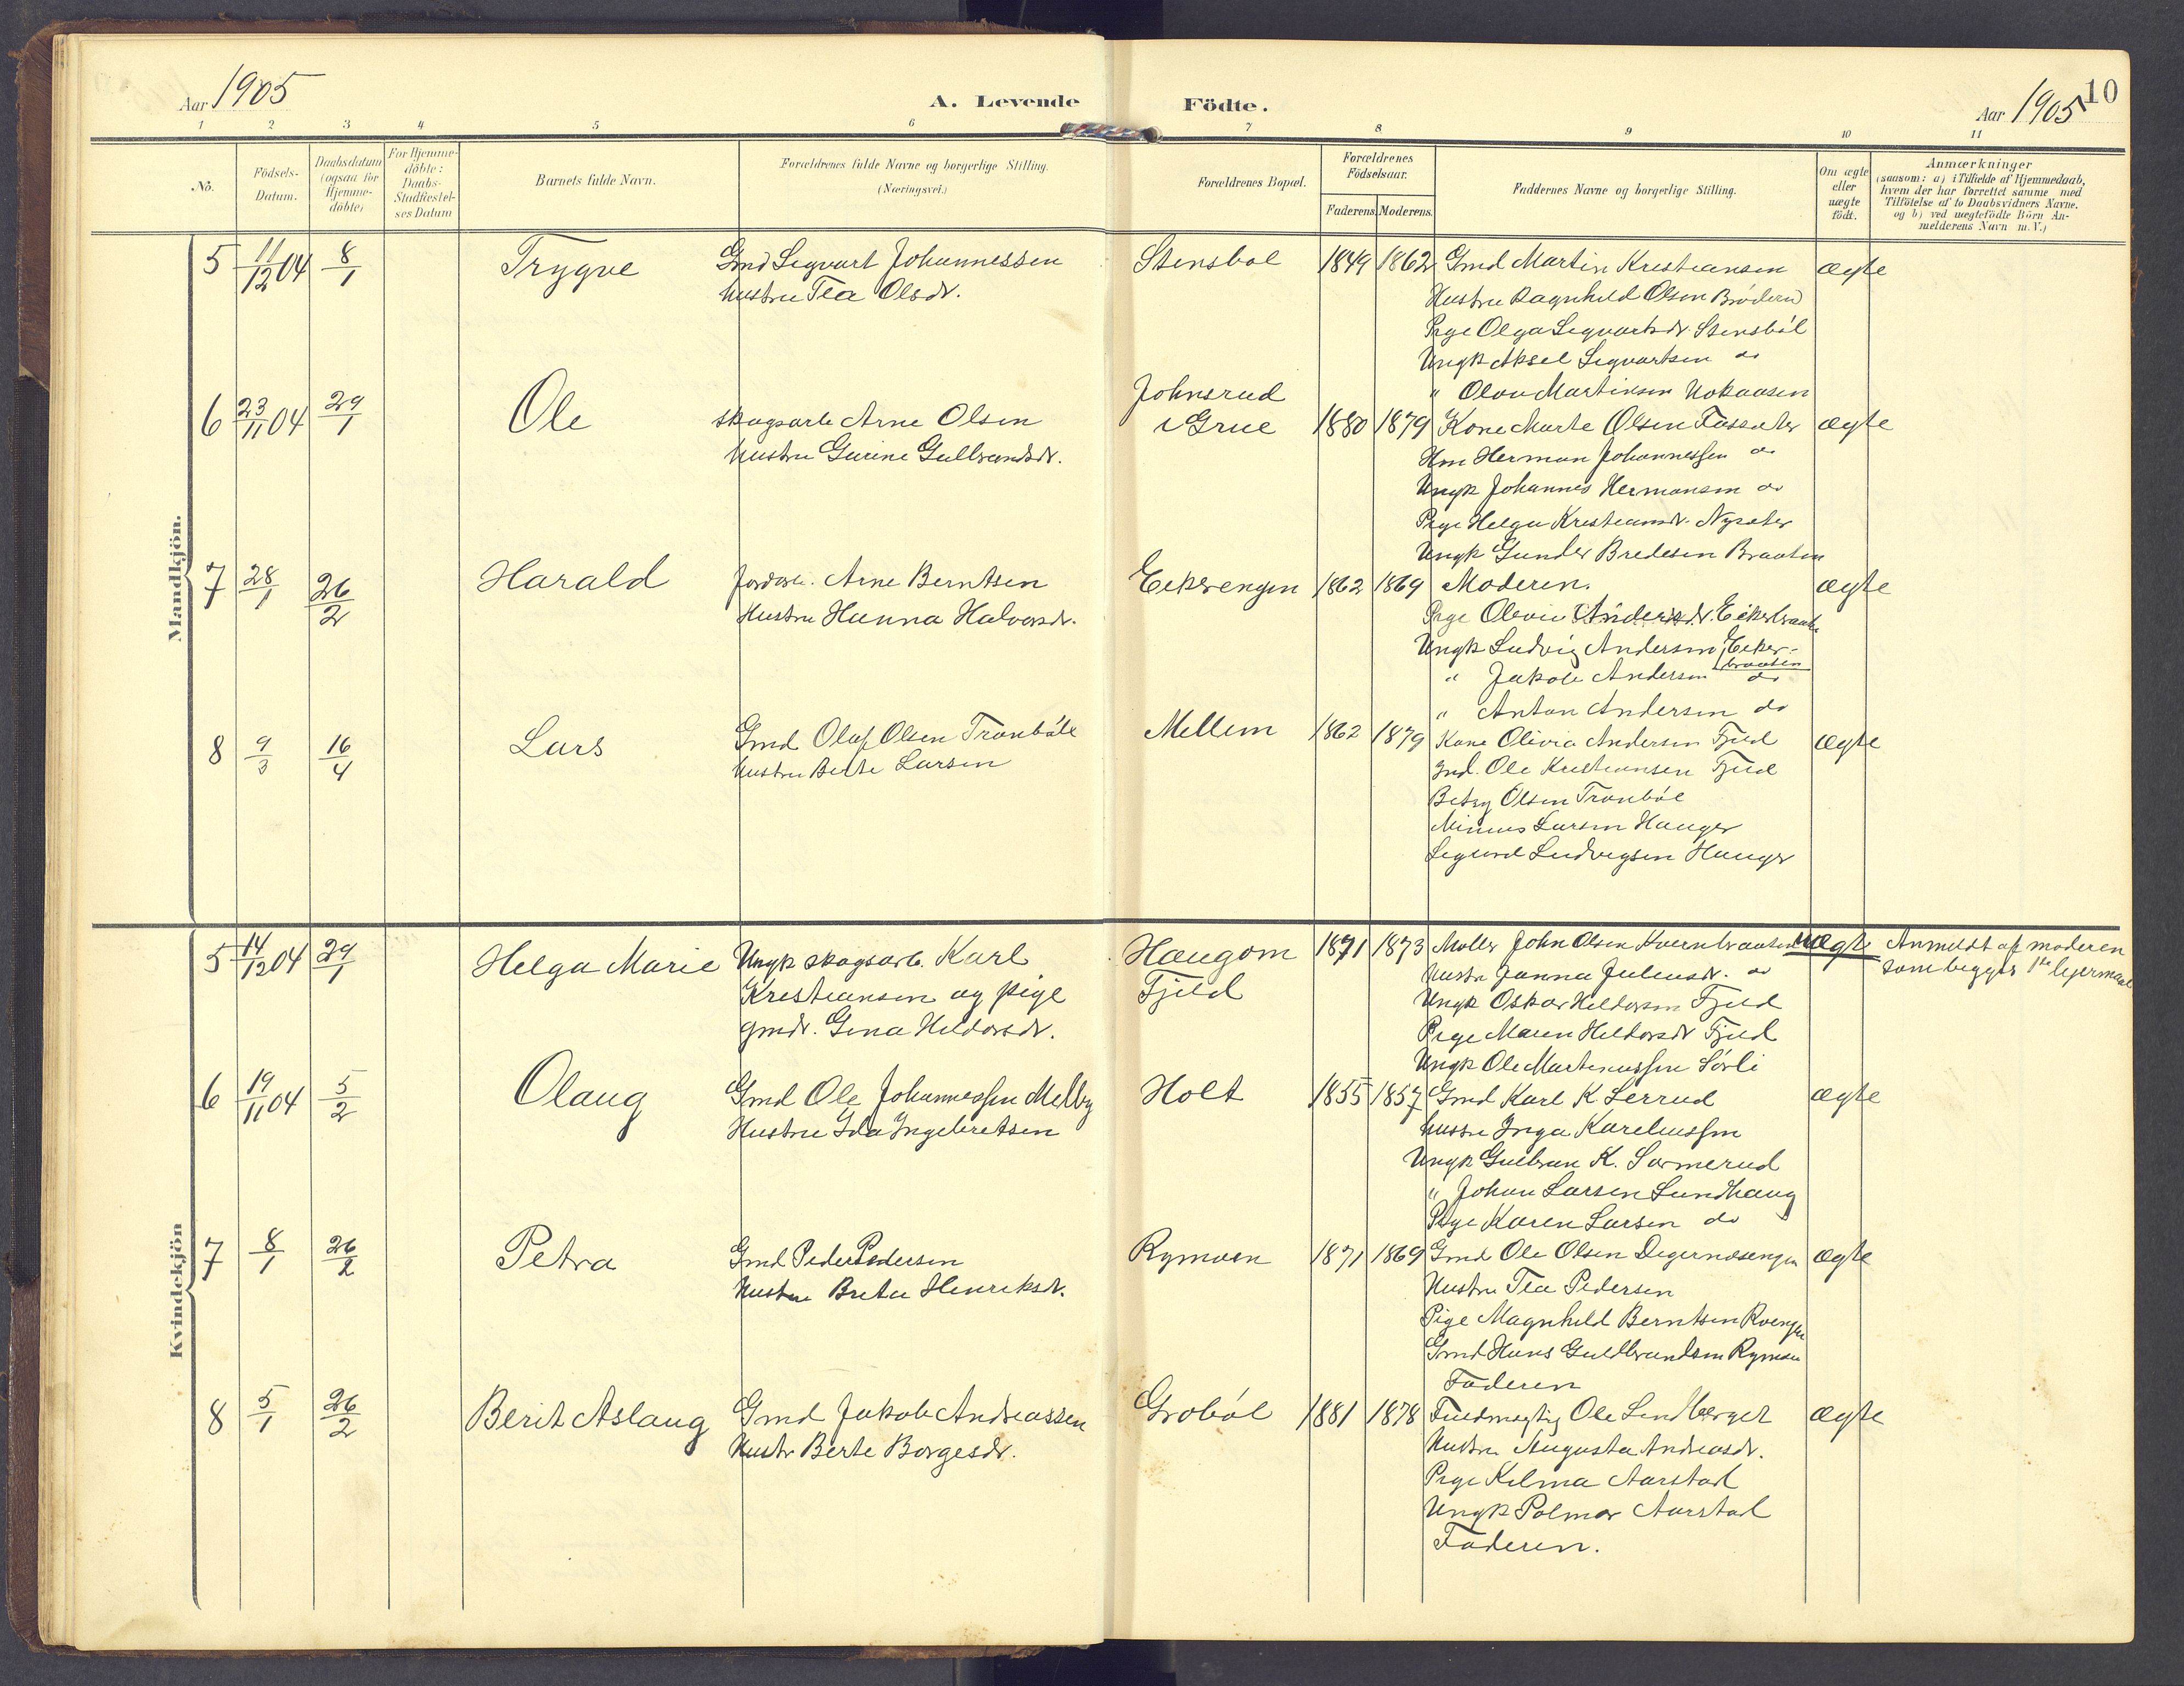 Aar 1905
A. Levende Födte.
Aar 1905
10
1 2 3 4 5 6 7 8 9 10 11
No.
Födsels-Datum.
Daabsdatum (ogsaa for Hjemme-döbte)
For Hjemme-döbte: Daabs-Stadfæstel-ses Datum
Barnets fulde Navn.
Forældrenes fulde Navne og borgerlige Stilling.
(Næringsvei.)
Forældrenes Bopæl.
Forældrenes Födselsaar.
Faderens. Moderens.
Faddernes Navne og borgerlige Stilling.
Om ægte eller uægte födt.
Anmærkninger
(saasom: a) i Tilfælde af Hjemmedaab,
hvem der har forrettet samme med
Tilföielse af to Daabsvidners Navne.
og b) ved uægtefödte Börn An-
melderens Navn m. V.)
Mandkjön.
5 11/12 04 8/1 Trygve Gmd Sigvart Johannessen Stensbøl 1849 1862 Gmd Martin Kristiansen ægte
Hustru Tea Olsdr. Hustru Ragnhild Olsen
Pige Olga Sigvartsdr. Stensböl
Ungk Aksel Sigvartsen do
" Olav Martinsen
6 23/11 04 29/1 Ole skogsarb Arne Olsen Johnsrud
i Grue 1880 1879 Kone Marte Olsen ægte
Hustru Gurine Gulbrandsdr. Hm Herman Johannessen do
Ungk Johannes Hermansen do
Pige Helga Kristiansdr. Nysæter
Ungk Gunder Bredesen Braaten
7 28/1 26/2 Harald Jordarb. Arne Berntsen Eekerengen 1862 1869 Moderen. ægte
Hustru Hanna Halvorsdr. Pige Olovie Andersdr. Eikerbraaten
Ungk Ludvig Andersen Eeker-
braaten
" Jakob Andersen do
" Anton Andersen do
8 9/3 16/4 Lars Gmd Olaf Olsen Tronböl Mellem 1862 1879 Kone Olivia Andersen Fjeld ægte
Hustru Berte Larsen Ole Kristiansen Fjeld
Betzy Olsen Tronböl
Larsen Hauger
Sigurd Ludvigsen Hauger
Kvindekjön
5 14/12 04 29/1 Helga Marie Ungk skogsarb. Karl Haugom 1871 1873 Møller John Olsen Kvernbraaten uægte Anmeldt af moderen
Kristiansen og pige Fjeld Hustru Janna Juliusdr. do som begges 1ste lejermaal
gmdr. Gina Heldorsdr. Ungk Oskar Heldorsen Fjeld
Pige Maren Heldorsdr Fjeld
Ungk Ole Martinussen Sörli
6 19/11 04 5/2 Olaug Gmd Ole Johannessen Melby Holt 1855 1857 Gmd Karl K Lerrud ægte
Hustru Ida Ingebretsen Hustru Inga Kareliussen
Ungk Gulbran K. Sormerud
" Johan Larsen Sundhaug
Pige Karen Larsen do
7 8/1 26/2 Petra Gmd Peder Pedersen Rymoen 1871 1869 Gmd Ole Olsen Digernæsengen ægte
Hustru Breta Henriksdr. Hustru Tea Pedersen
Pige Magnhild Berntsen
Gmd Hans Guldbrandsen Rymoen
Faderen
8 5/1 26/2 Berit Aslaug Gmd Jakob Andreassen Grøböl 1881 1878 Fuldmægtig Ole Lindberget ægte
Hustr Berte Borgesdr. Hustru Augusta Andreasdr.
Pige Hilma Aarstad
Ungk Palmar Aarstad
Faderen.